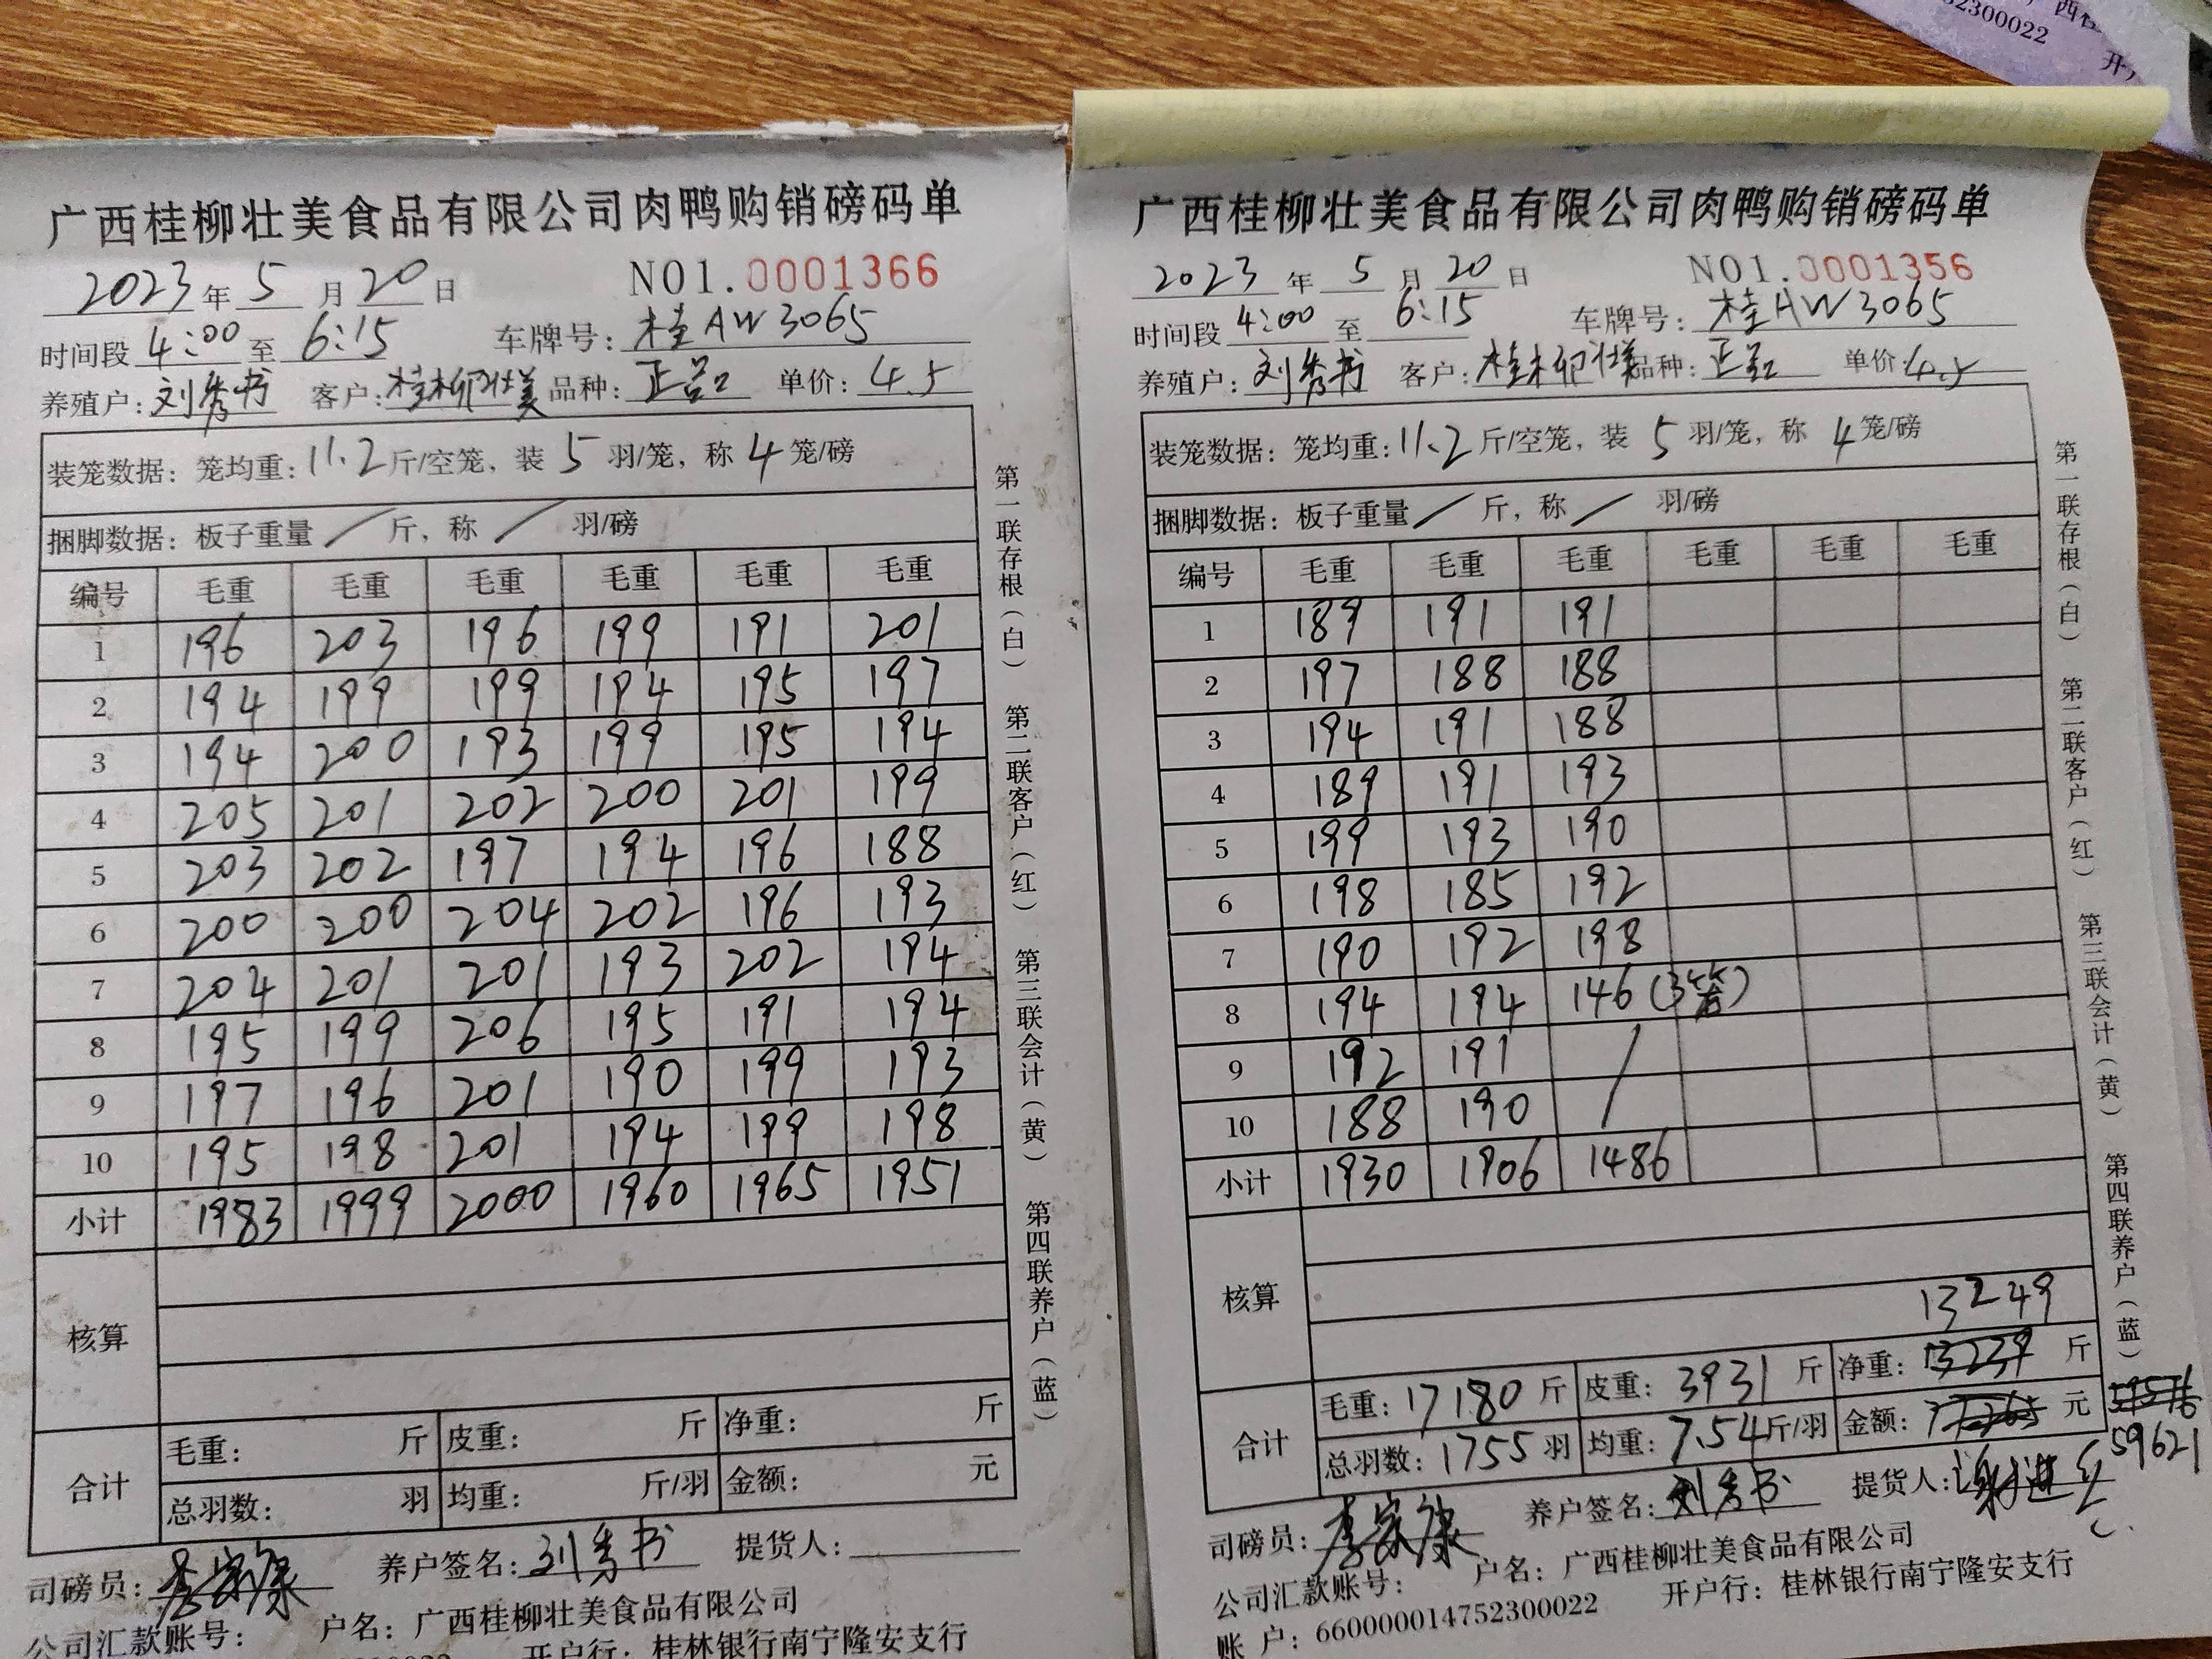 广西桂柳壮美食品有限公司肉鸭购销磅码单
2023年5月20日 NO1.0001366
时间段4:00至6:15 车牌号:桂AW3065
养殖户:刘秀书 客户:桂柳壮美 品种:正品 单价:4.5
装笼数据:笼均重:11.2斤/空笼,装5羽/笼,称4笼/磅
捆脚数据:板子重量/斤,称/羽/磅
编号 毛重 毛重 毛重 毛重 毛重 毛重
1 196 203 196 199 191 201
2 194 199 199 194 195 197
3 194 200 193 199 195 194
4 205 201 202 200 201 199
5 203 202 197 194 196 188
6 200 200 204 202 196 193
7 204 201 201 193 202 194
8 195 199 206 195 191 194
9 197 196 201 190 199 193
10 195 198 201 194 199 198
小计 1983 1999 2000 1960 1965 1951
核算
合计
毛重: 斤 皮重: 斤 净重: 斤
总羽数: 羽 均重: 斤/羽 金额: 元
司磅员:李家康 养户签名:刘秀书 提货人:
公司汇款账号: 户名:广西桂柳壮美食品有限公司
开户行:桂林银行南宁隆安支行
第一联存根(白) 第二联客户(红) 第三联会计(黄) 第四联养户(蓝)
广西桂柳壮美食品有限公司肉鸭购销磅码单
2023年5月20日 NO1.0001356
时间段4:00至6:15 车牌号:桂AW3065
养殖户:刘秀书 客户:桂柳壮美 品种:正品 单价:4.5
装笼数据:笼均重:11.2斤/空笼,装5羽/笼,称4笼/磅
捆脚数据:板子重量/斤,称/羽/磅
编号 毛重 毛重 毛重 毛重 毛重 毛重
1 189 191 191
2 197 188 188
3 194 191 188
4 189 191 193
5 199 193 190
6 198 185 192
7 190 192 198
8 194 194 146(3笼)
9 192 191 /
10 188 190
小计 1930 1906 1486
核算
13249
合计
毛重:17180斤 皮重:3931斤 净重:13239斤
总羽数:1755羽 均重:7.54斤/羽 金额: 元 59576
59621
司磅员:李家康 养户签名:刘秀书 提货人:
公司汇款账号: 户名:广西桂柳壮美食品有限公司
账 户:660000014752300022 开户行:桂林银行南宁隆安支行
第一联存根(白) 第二联客户(红) 第三联会计(黄) 第四联养户(蓝)
2300022